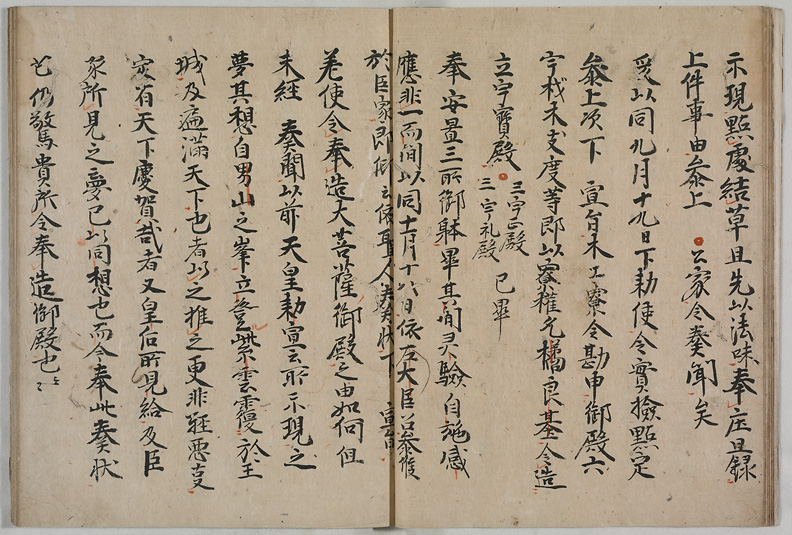 示現點處結草且先以法味奉庄且録
上件事由参上 公家令奏聞矣
爰以同九月十九日下勅使令實撿點定
参上次下 宣旨木工寮令勘申御殿六
宇材木支度等即以寮權允橘良基令造
立六宇寶殿 三宇正殿 三宇礼殿 已畢
奉安置三所御躰畢其間灵驗自施感
應非一而間以同十一月十八日依左大臣召参候
於臣家即依聖人奏状下 宣旨
差使令奉造大菩薩御殿之由如何但
未経 奏聞以前天皇勅宣云所示現之
夢其想自男山之峯立登紫雲覆於王
城及遍滿天下也者以之推之更非強惡夏
定有天下慶賀哉者又皇后所見給及臣
家所見之夢已以同想也而今奉此奏状
乞仍驚貴所令奉造御殿也